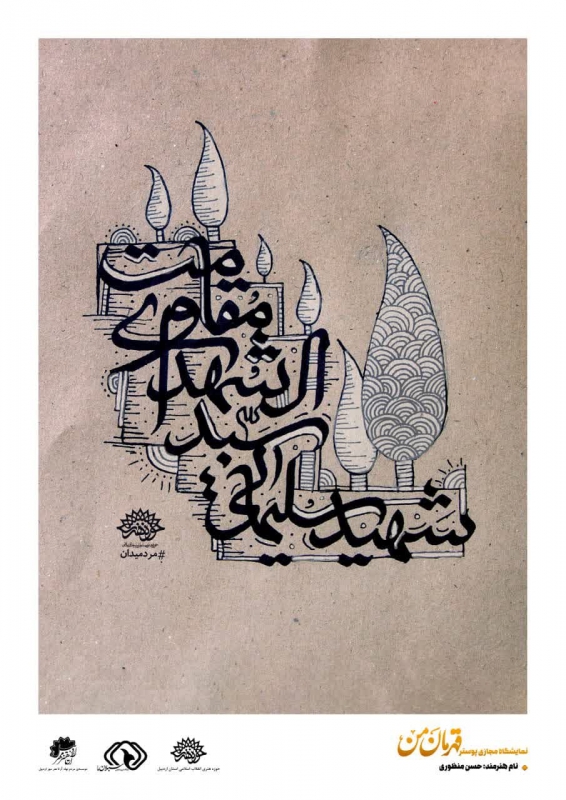 شهید سلیمانی
سید الشهدای
مقاومت
#مردمیدان
نمایشگاه مجازی پوستر قهرمان من
نام هنرمند: حسن منظوری
حوزه هنری انقلاب اسلامی استان اردبیل